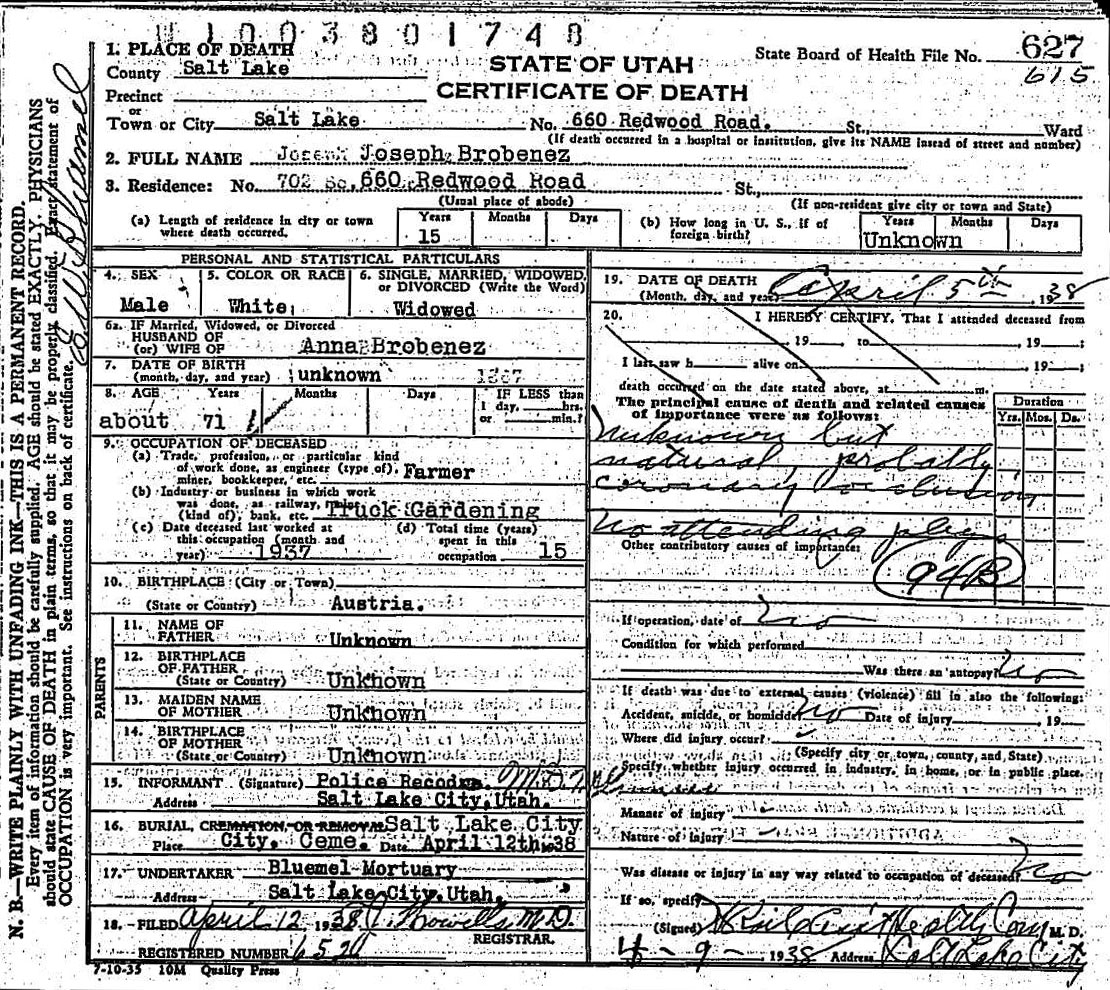 N. B.—WRITE PLAINLY WITH UNFADING INK—THIS IS A PERMANENT RECORD.
Every item of information should be carefully supplied. AGE should be stated EXACTLY. PHYSICIANS
should state CAUSE OF DEATH in plain terms, so that it may be properly classified. Exact statement of
OCCUPATION is very important. See instructions on back of certificate.
1003801748
State Board of Health File No. 627
615
STATE OF UTAH
CERTIFICATE OF DEATH
1. PLACE OF DEATH
County Salt Lake
Precinct
or
Town or City Salt Lake No. 660 Redwood Road. St., Ward
(If death occurred in a hospital or institution, give its NAME instead of street and number)
2. FULL NAME Joseph Joseph Brobenez
3. Residence: No. 702 So. 660 Redwood Road St.,
(Usual place of abode) (If non-resident give city or town and State)
(a) Length of residence in city or town where death occurred. Years 15 Months Days
(b) How long in U. S., if of foreign birth? Years Unknown Months Days
PERSONAL AND STATISTICAL PARTICULARS
4. SEX Male
5. COLOR OR RACE White
6. SINGLE, MARRIED, WIDOWED, or DIVORCED (Write the Word) Widowed
6a. IF Married, Widowed, or Divorced
HUSBAND OF
(or) WIFE OF Anna Brobenez
7. DATE OF BIRTH
(month, day, and year) unknown 1867
8. AGE Years Months Days IF LESS than
1 day, hrs.
or min.?
about 71
9. OCCUPATION OF DECEASED
(a) Trade, profession, or particular kind
of work done, as engineer (type of),
miner, bookkeeper, etc. Farmer
(b) Industry or business in which work
was done, as railway,
(kind of), bank, etc. Truck Gardening
(c) Date deceased last worked at
this occupation (month and
year) 1937
(d) Total time (years)
spent in this
occupation 15
10. BIRTHPLACE (City or Town)
(State or Country) Austria.
PARENTS
11. NAME OF
FATHER Unknown
12. BIRTHPLACE
OF FATHER
(State or Country) Unknown
13. MAIDEN NAME
OF MOTHER Unknown
14. BIRTHPLACE
OF MOTHER
(State or Country) Unknown
15. INFORMANT (Signature) Police Records.
Address Salt Lake City, Utah.
16. BURIAL, CREMATION, OR REMOVAL Salt Lake City
Place City. Ceme. Date April 12th 1938
17. UNDERTAKER Bluemel Mortuary
Address Salt Lake City, Utah.
18. FILED April 12 1938 Howells M.D.
REGISTRAR.
REGISTERED NUMBER 6520
7-10-35 10M Quality Press
19. DATE OF DEATH
(Month, day, and year) April 5th, 1938
20. I HEREBY CERTIFY, That I attended deceased from
, 19 to , 19 ;
I last saw h alive on , 19 ;
death occurred on the date stated above, at m.
The principal cause of death and related causes
of importance were as follows:
Duration
Yrs. Mos. Ds.
Unknown but
natural, probably
coronary occlusion
No attending phys
Other contributory causes of importance:
94B
If operation, date of No
Condition for which performed
Was there an autopsy? No
If death was due to external causes (violence) fill in also the following:
Accident, suicide, or homicide? no Date of injury , 19
Where did injury occur?
(Specify city or town, county, and State)
Specify whether injury occurred in industry, in home, or in public place.
Manner of injury
Nature of injury
Was disease or injury in any way related to occupation of deceased? No
If so, specify
(Signed) Health Com M. D.
4-9- 1938 Address Salt Lake City